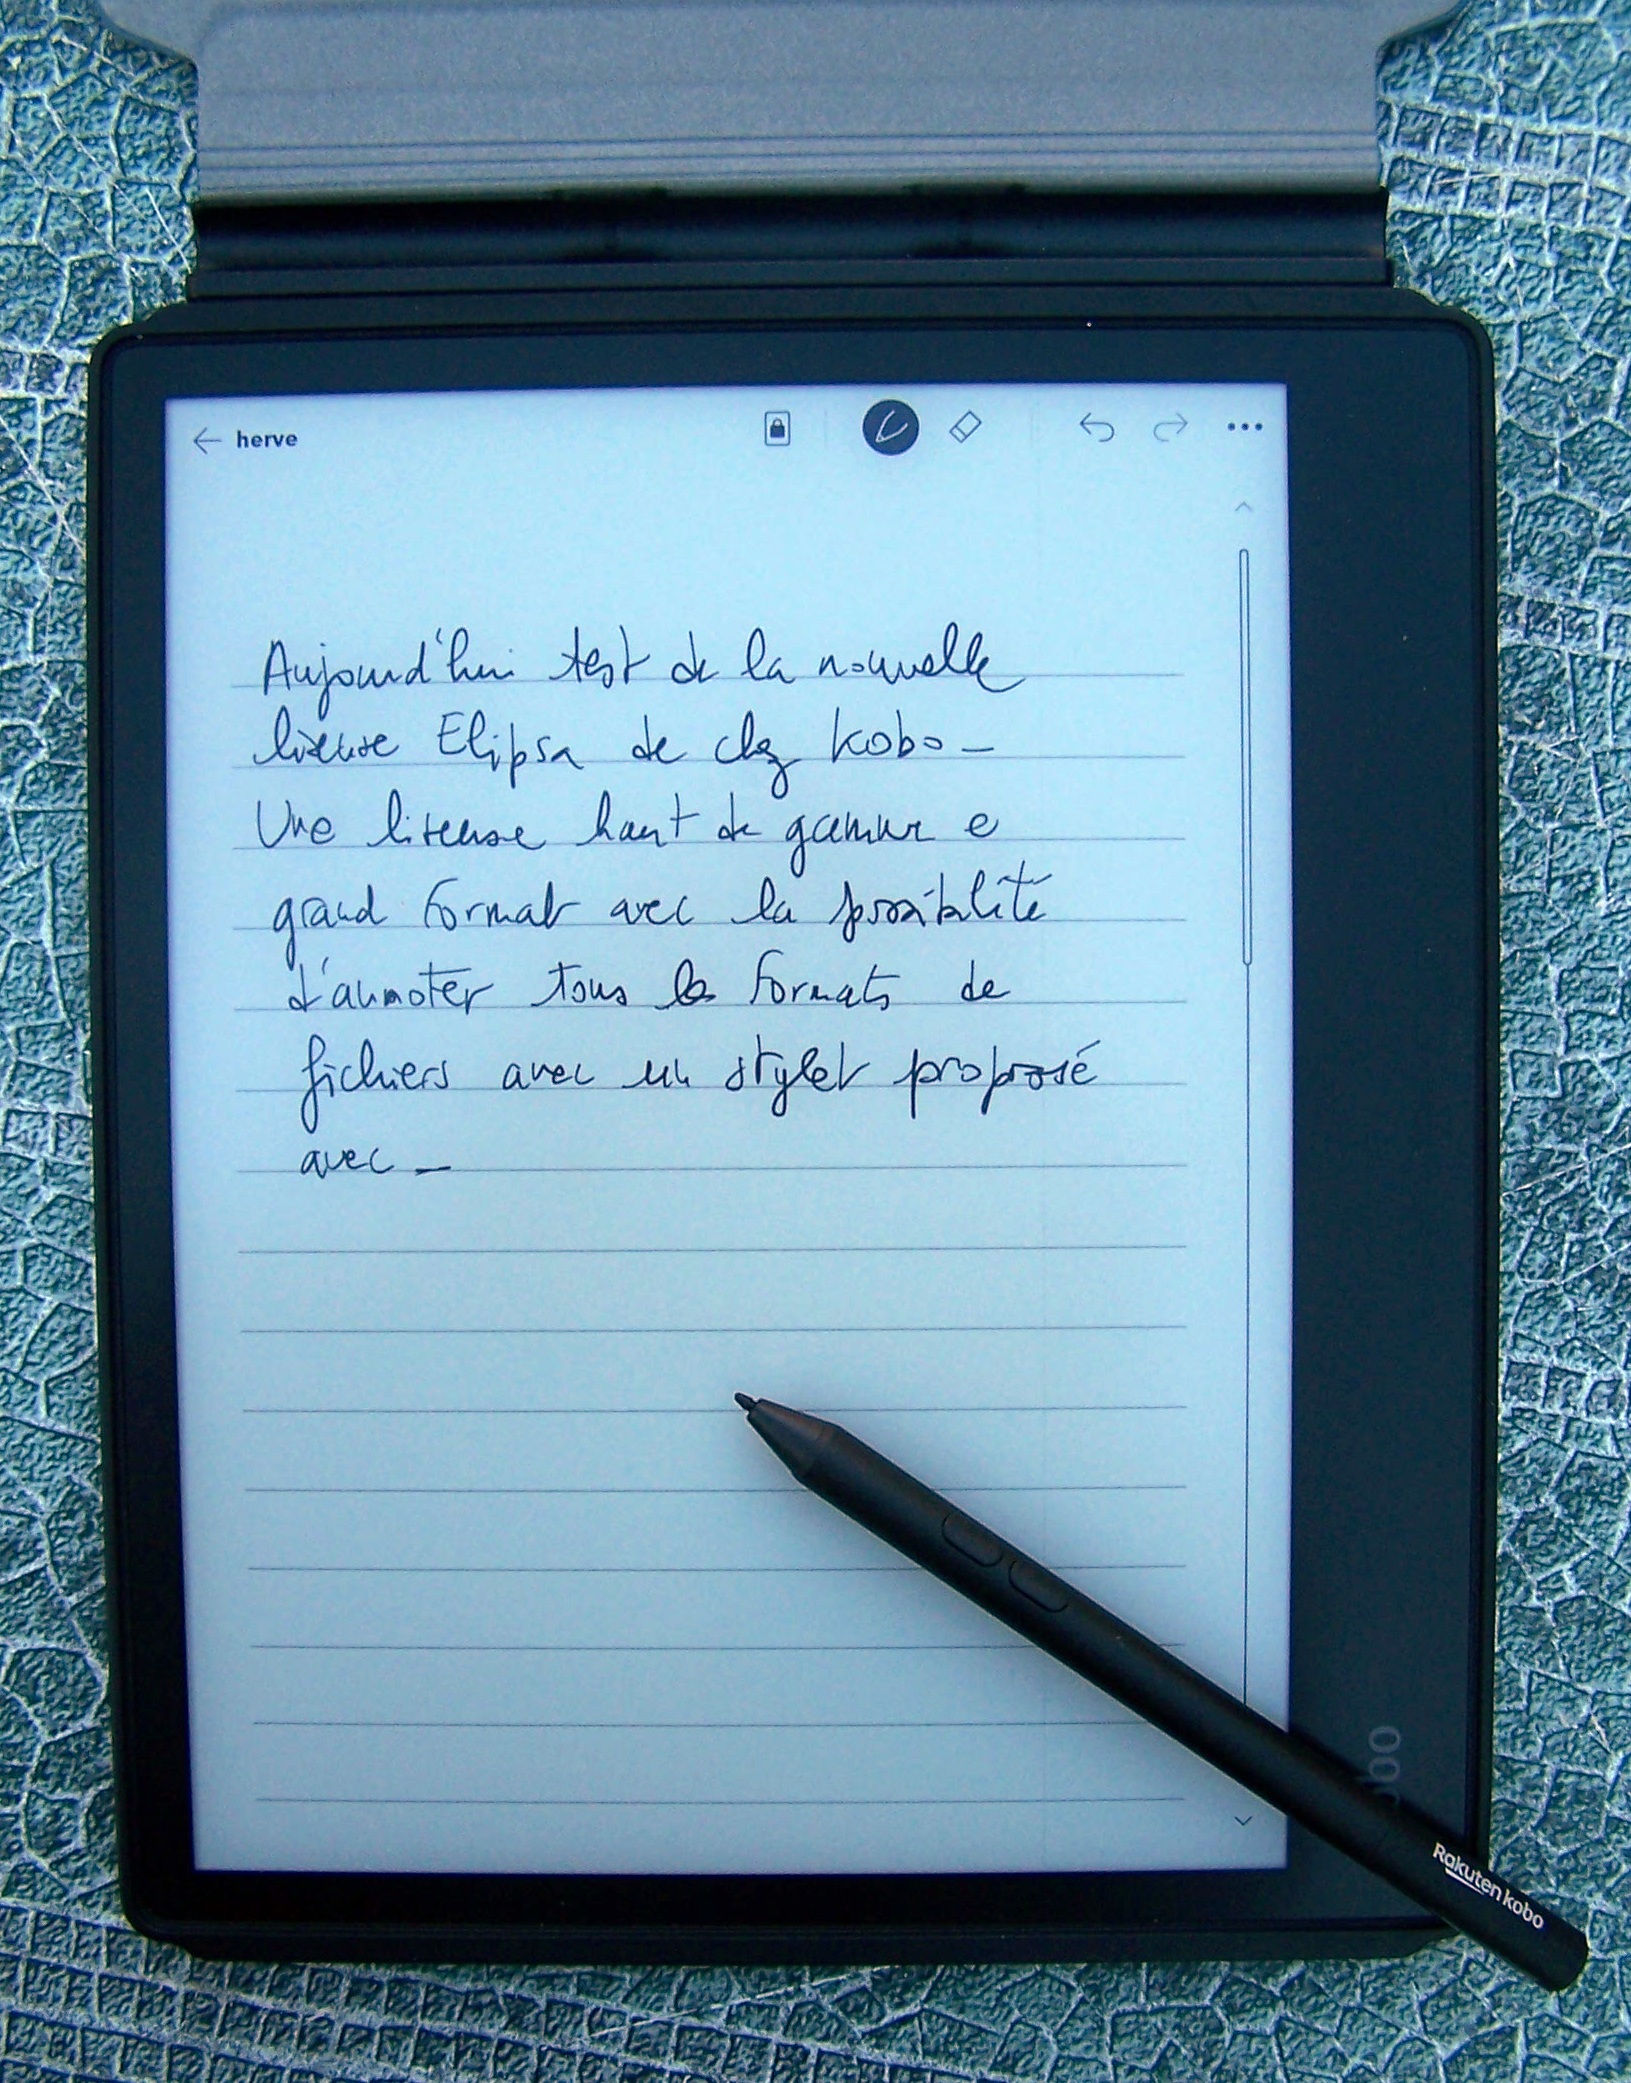 herve
Aujourd'hui test de la nouvelle
liseuse Elipsa de chez Kobo_
Une liseuse haut de gamme e
grand format avec la possibilité
d'annoter tous les formats de
fichiers avec un stylet proposé
avec_
obo
Rakuten kobo